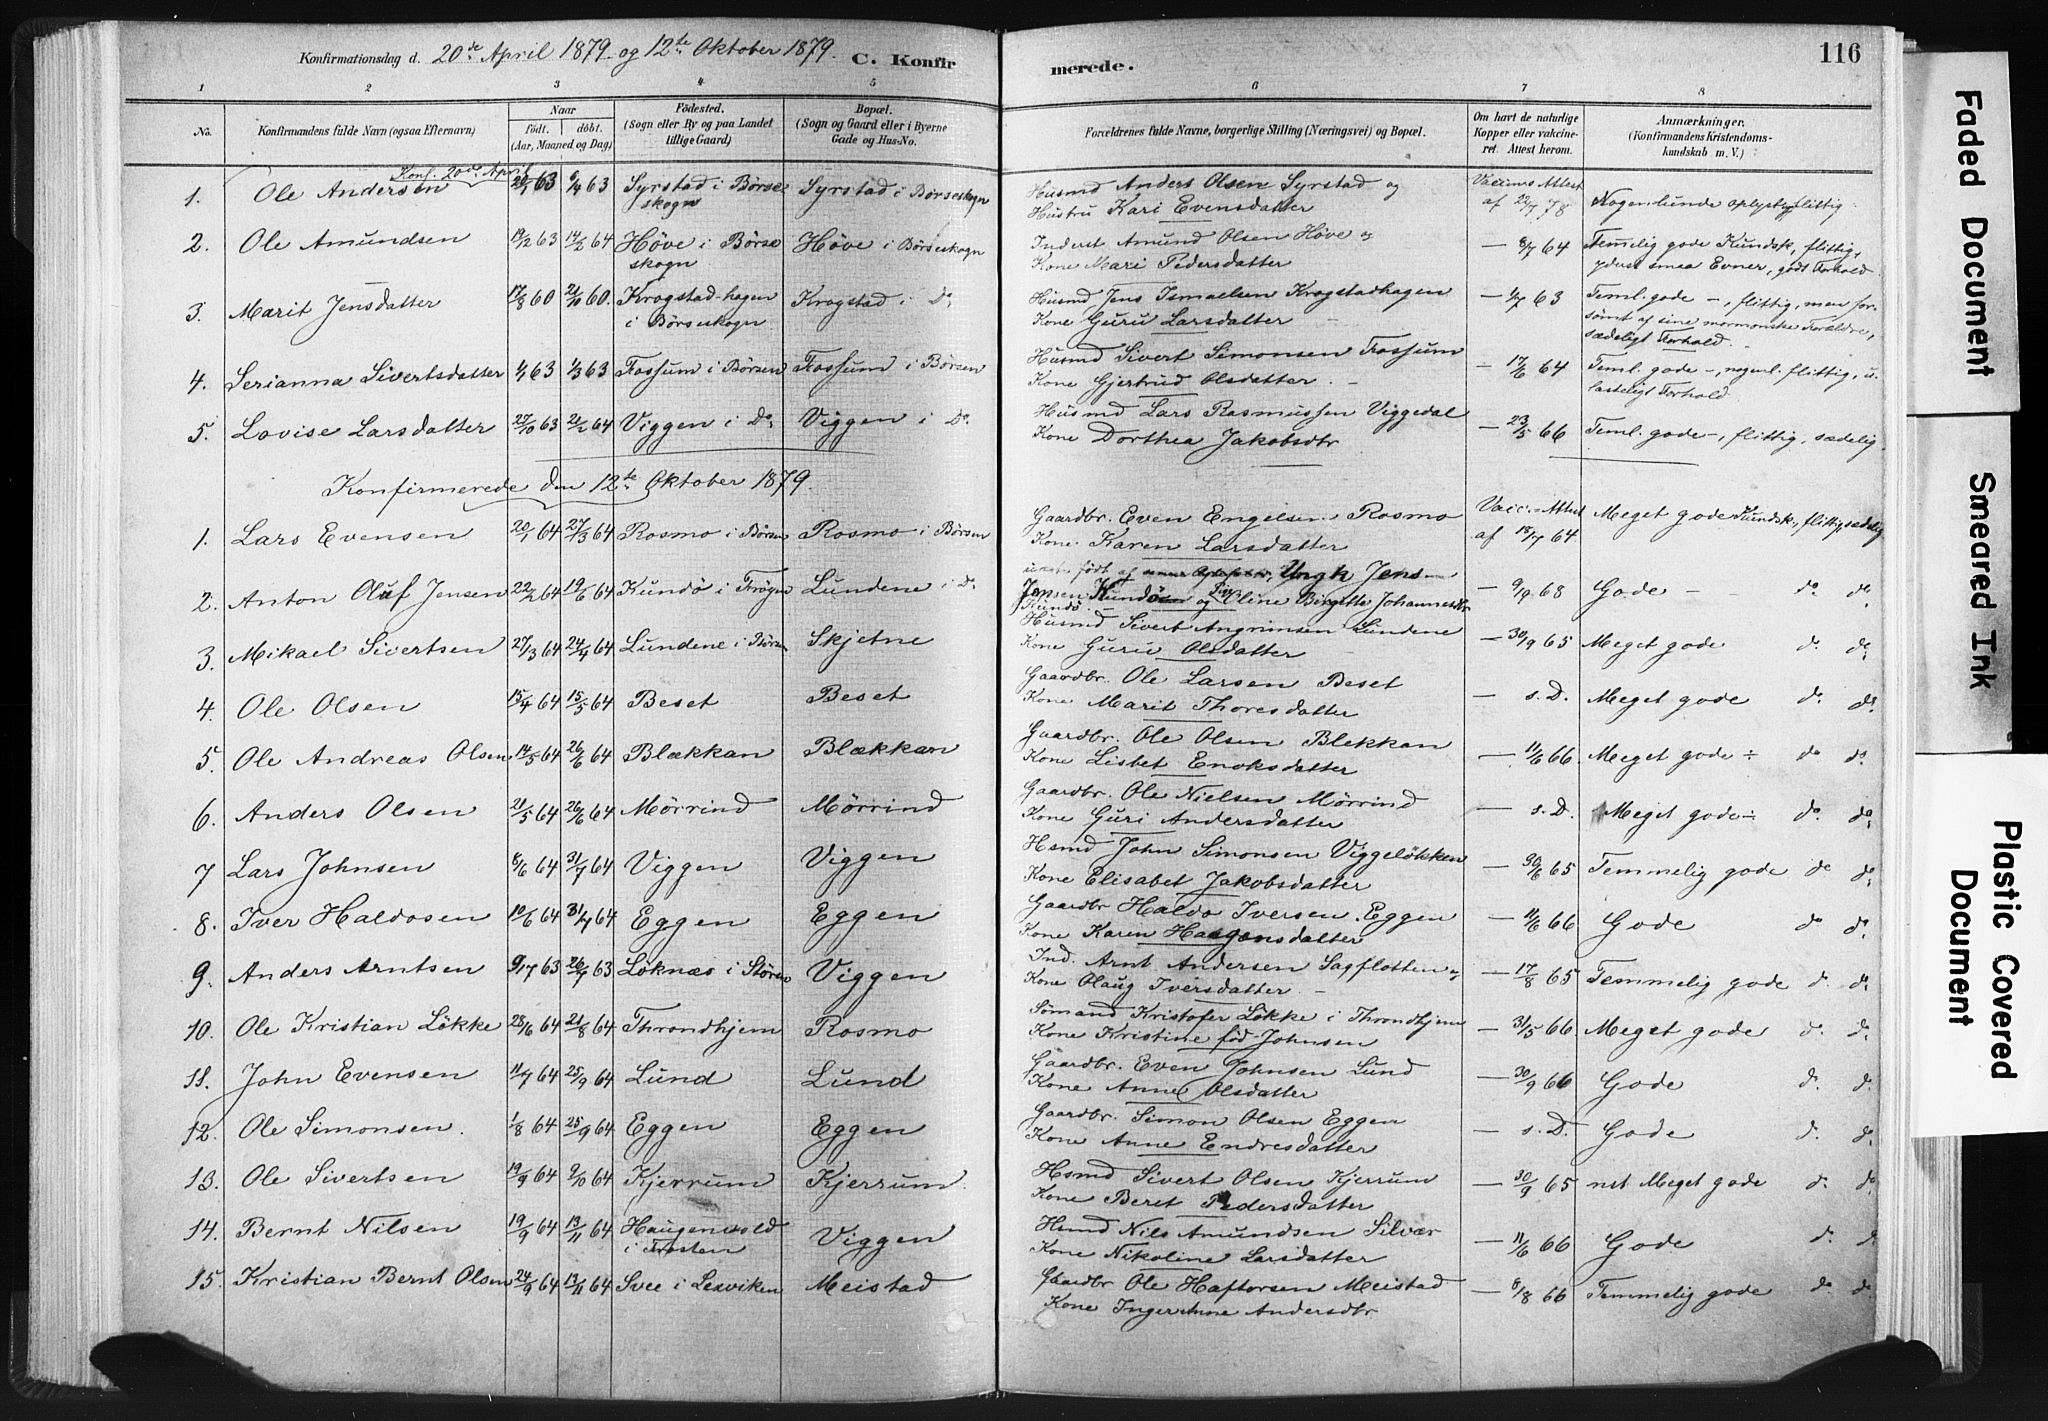 Konfirmationsdag d. 20de April 1879 og 12te Oktober 1879. C. Konfirmerede. 116
1 2 3 4 5 6 7 8
No. Konfirmandens fulde Navn (ogsaa Efternavn) Naar födt. döbt. (Aar, Maaned og Dag) Födested. (Sogn eller By og paa Landet tillige Gaard) Bopæl. (Sogn og Gaard eller i Byerne Gade og Hus-No. Forældrenes fulde Navne, borgerlige Stilling (Næringsvei) og Bopæl. Om havt de naturlige Kopper eller vakcineret. Attest herom. Anmærkninger. (Konfirmandens Kristendomskundskab m. V.)
Konf. 20de April
1. Ole Andersen 63 63 Syrstad i Börseskogn Syrstad i Börseskogn Husmd Anders Olsen Syrstad og Hustru Kari Evensdatter Vaccines Attest af 78 Nogenlunde oplyst, flittig
2. Ole Amundsen 19/2 63 14/2 64 Höve i Börseskogn Höve i Börseskogn Inderst Amund Olsen Höve og Kone Mari Pedersdatter — 8/7 64 Temmelig gode Kundsk, flittig, yderst smaa Evner, godt Forhold
3. Marit Jensdatter 17/8 60 21/10 60. Krogstadhagen i Börseskogn Krogstad i Do Husmd Jens Ismaelsen Krogstadhagen Kone Guru Larsdatter — 63 Teml. gode —, flittig, men forsömt af sine mormonske Forældre, sædeligt Forhold.
4. Serianna Sivertsdatter 63 1/3 63 Fossum i Börsen Fossum i Börsen Husmd Sivert Simonsen Fossum Kone Gjertrud Olsdatter. — 17/6 64 Teml. gode —, nogenl. flittig, ulasteligt Forhold
5. Lovise Larsdatter 27/10 63 21/2 64 Viggen i Do Viggen i Do Husmd Lars Rasmussen Viggedal Kone Dorthea Jakobsdtr — 23/5 66 Teml. gode —, flittig, sædelig
Konfirmerede den 12te Oktober 1879
1. Lars Evensen 20/1 64 27/3 64 Rosmo i Börsen Rosmo i Börsen Gaardbr. Even Engelsen Rosmo Kone Karen Larsdatter Vacc.-Attest af 18/7 64 Meget gode Kundsk., flittig, sædelig
2. Anton Oluf Jensen 22/2 64 19/6 64 Kundö i Frögn Lundene i Do Ungk Jens Jensen Kundö og Pige Eline Birgitte Johannesdtr — 9/9 68 Gode — do do
3. Mikael Sivertsen 27/3 64 24/4 64 Lundene i Börsen Skjetne Husmd Sivert Angrimsen Lundene Kone Guru Olsdatter — 30/9 65 Meget gode do do
4. Ole Olsen 15/4 64 15/5 64 Beset Beset Gaardbr. Ole Larsen Beset Kone Marit Thoresdatter — s. D. Meget gode do do
5. Ole Andreas Olsen 14/5 64 26/6 64 Blækkan Blækkan Gaardbr. Ole Olsen Blekkan Kone Lisbet Enoksdatter — 11/6 66 Meget gode ÷ do do
6. Anders Olsen 21/5 64 26/6 64 Mörrind Mörrind Gaardbr. Ole Nielsen Mörrind Kone Guri Andersdatter — s. D. Meget gode ÷ do do
7 Lars Johnsen 8/6 64 31/7 64 Viggen Viggen Hsmd John Simonsen Viggelökken Kone Elisabet Jakobsdatter — 30/6 65 Temmelig gode do do
8. Iver Haldosen 10/6 64 31/7 64 Eggen Eggen Gaardbr Haldo Iversen Eggen Kone Karen Haagensdatter — 11/6 66 Gode do do
9. Anders Arntsen 9/7 63 26/7 63 Löknæs i Stören Viggen Ind. Arnt Andersen Sagflotten og Kone Olaug Iversdatter — — 17/8 65 Temmelig gode do do
10. Ole Kristian Lökke 28/6 64 21/8 64 Throndhjem Rosmo Sömand Kristofer Lökke i Throndhjem Kone Kristine föd Johnsen — 31/5 66 Meget gode do do
11. John Evensen 11/7 64 25/9 64 Lund Lund Gaardbr. Even Johnsen Lund Kone Anne Olsdatter — 30/9 66 Gode do do
12. Ole Simonsen 1/8 64 25/9 64 Eggen Eggen Gaardbr. Simon Olsen Eggen Kone Anne Endresdatter — s. D. Gode do do
13. Ole Sivertsen 19/9 64 9/10 64 Kjerrum Kjerrum Hsmd Sivert Olsen Kjerrum Kone Beret Pedersdatter — 30/9 65 nst Meget gode do do
14. Bernt Nilsen 19/9 64 13/11 64 Haugenvold i Frosten Viggen Hsmd Nils Amundsen Silvær Kone Nikoline Larsdatter — 11/6 66 Gode do do
15. Kristian Bernt Olsen 24/9 64 13/11 64 Svee i Lexviken Meistad Gaardbr Ole Haftorsen Meistad Kone Inger Anne Andersdtr — 8/8 66 Temmelig gode do do
Faded Document
Smeared Ink
Plastic Covered Document